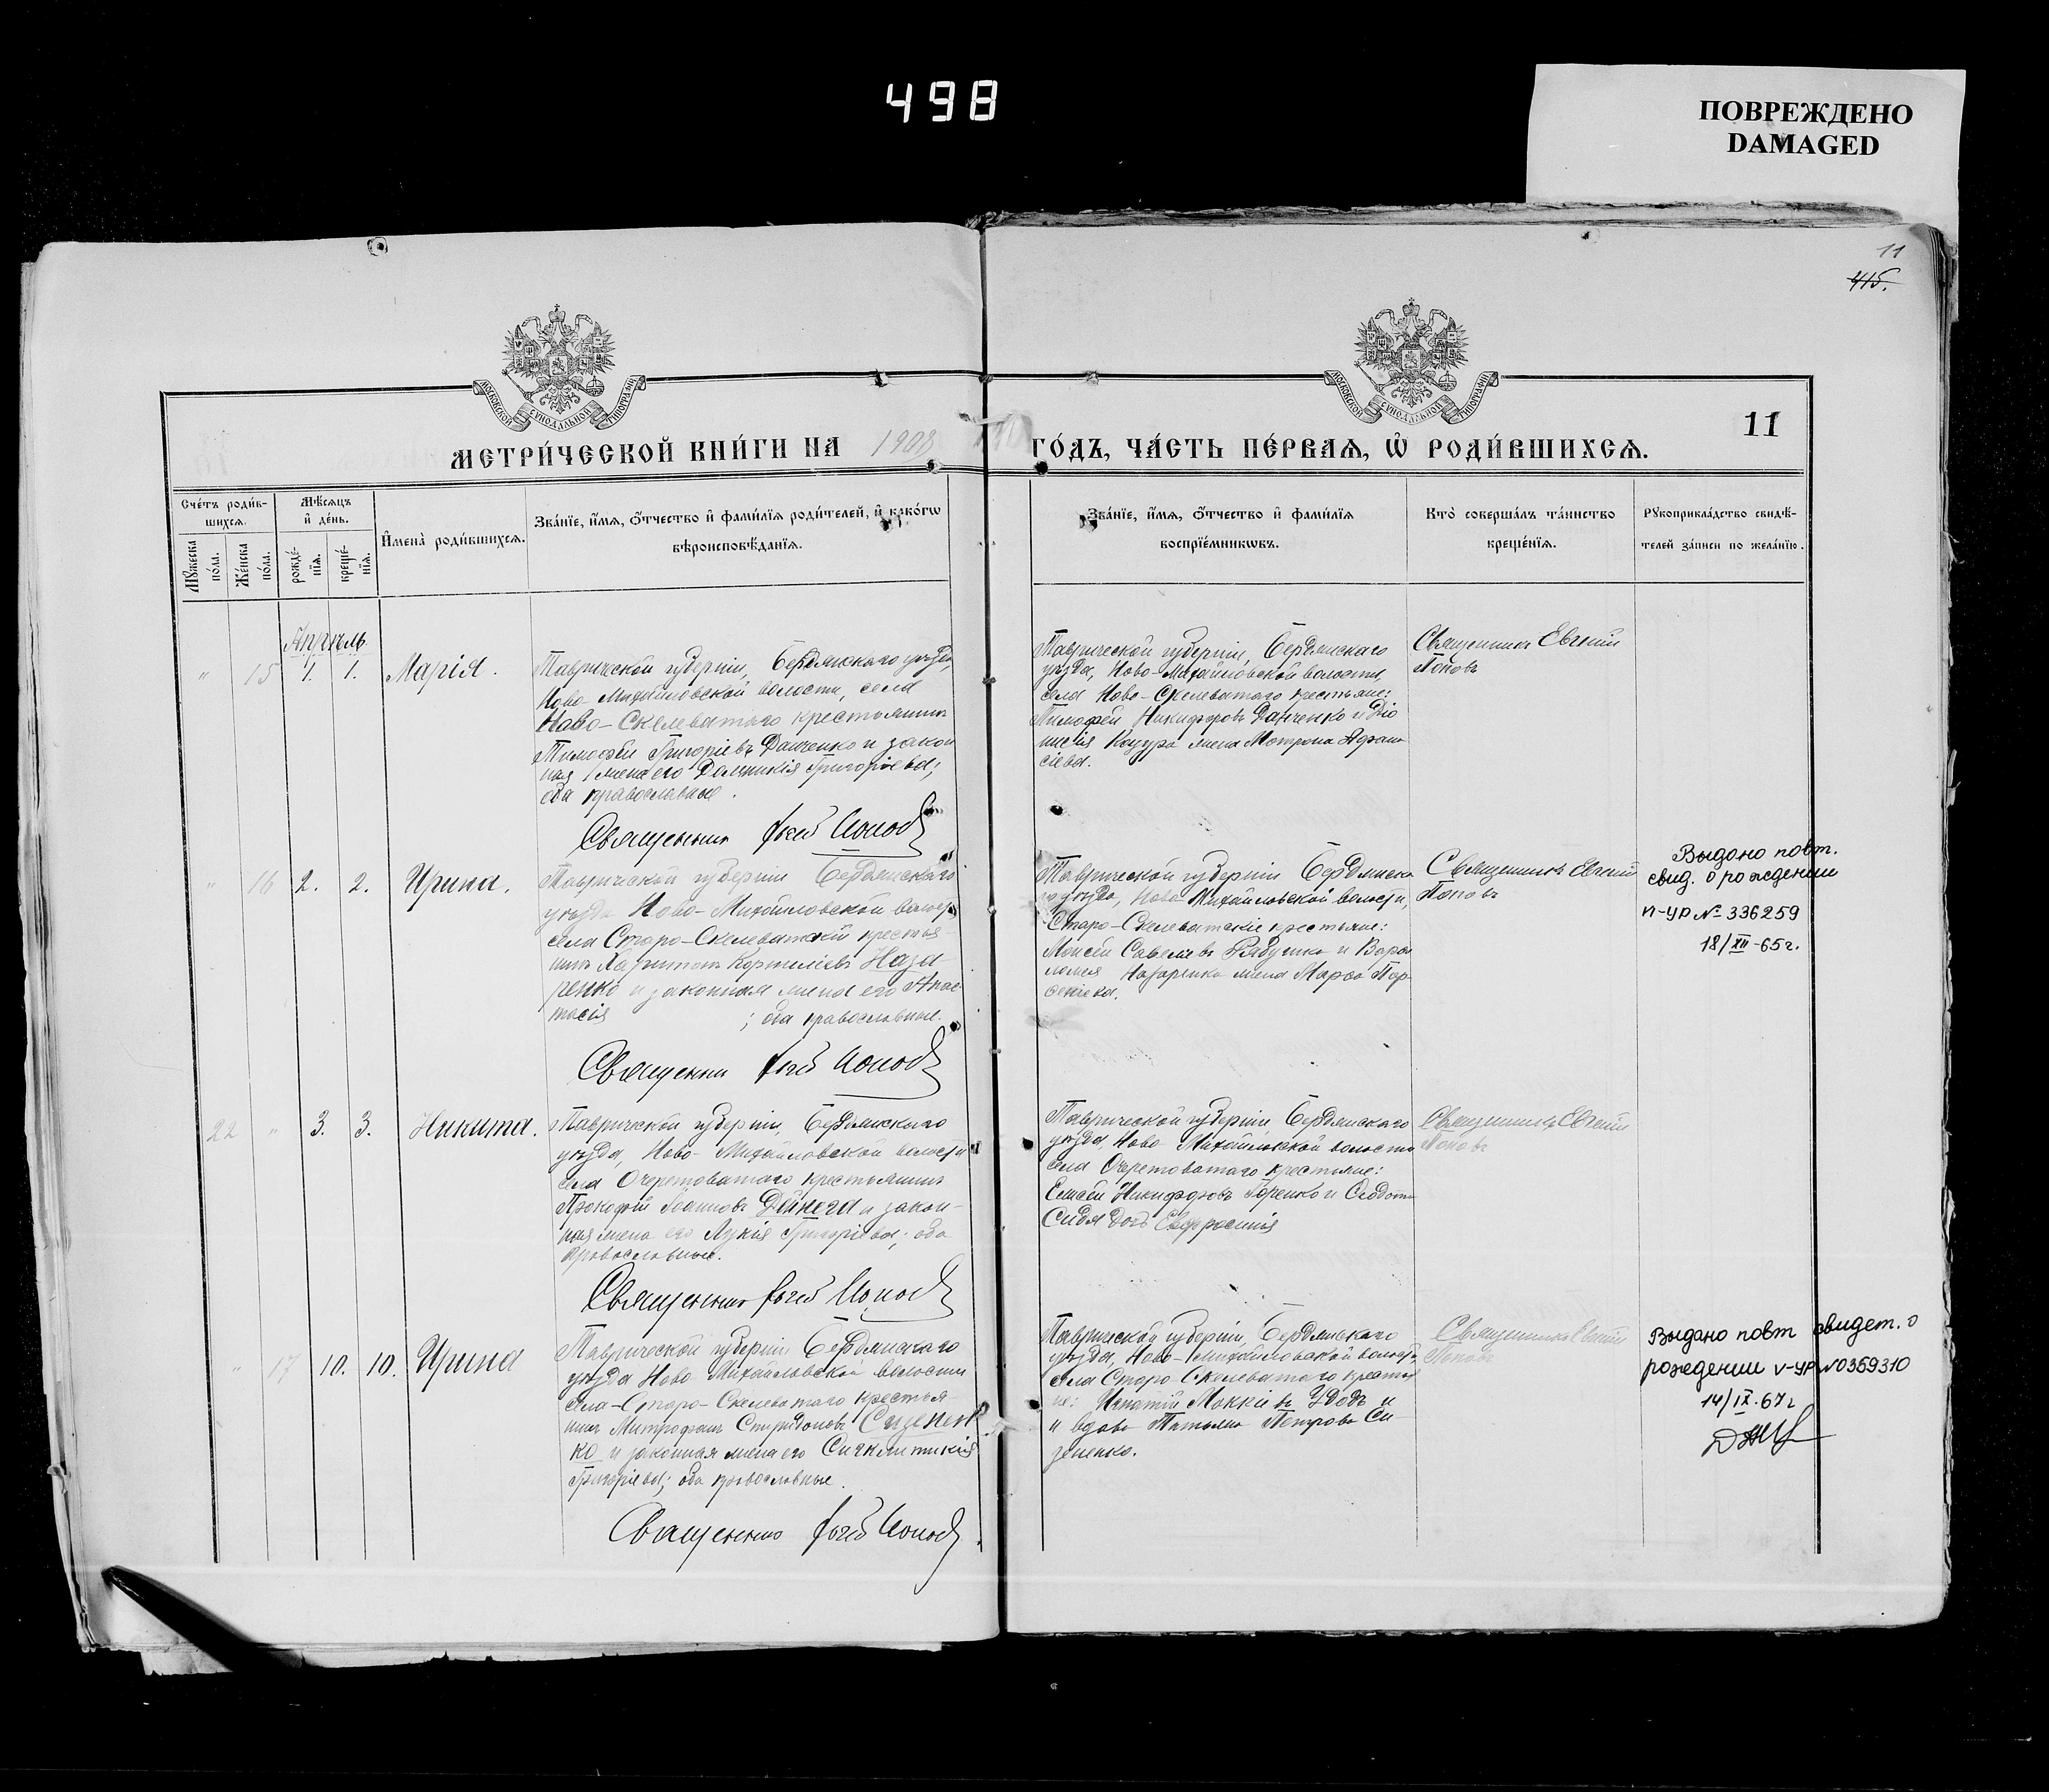 498
ПОВРЕЖДЕНО
DAMAGED
11
415.
МОСКОВСКОЙ СѴНОДАЛЬНОЙ ТИПОГРАФІИ
МОСКОВСКОЙ СѴНОДАЛЬНОЙ ТИПОГРАФІИ
МЕТРИ́ЧЕСКОЙ КНИ́ГИ НА 1908 ГО́ДЪ, ЧА́СТЬ ПЕ́РВАЯ, Ѡ РОДИ́ВШИХСЯ.
11
Сче́тъ роди́в-
шихся.
Мѣ́сяцъ
и де́нь.
Имена̀ роди́вшихся.
Зва́нїе, и́мя, о́тчество и фами́лїя роди́телей, и како́гѡ
вѣроисповѣ́данїя.
Мꙋ́жеска
по́ла.
Же́нска
по́ла.
рожде́-
нїя.
креще́-
нїя.
Зва́нїе, и́мя, о́тчество и фами́лїя
воспрїе́мникѡвъ.
Кто̀ соверша́лъ та́инство
креще́нїя.
Рꙋкоприкла́дство свидѣ́-
телей за́писи по жела́нїю.
Апрѣль
" 15 1. 1. Марія.
Таврической губерніи, Бердянскаго уѣзда,
Ново-Михайловской волости, села
Ново-Скелеватаго крестьянинъ
Тимофей Григоріевъ Данченко и закон
ная жена его Домникія Григоріева;
оба православные.
Священникъ Попов
Таврической губерніи, Бердянскаго
уѣзда, Ново-Михайловской волости,
села Ново-Скелеватаго крестьяне:
Тимофей Никифоровъ Данченко и Діо
нисія Коцура жена Матрона Афана
сіева.
Священникъ Евгеній
Поповъ
" 16 2. 2. Ирина.
Таврической губерніи Бердянскаго
уѣзда Ново-Михайловской волости
села Старо-Скелеватскій крестья
нинъ Харитонъ Корниліевъ Наза
ренко и законная жена его Анас
тасія ; оба православные.
Священник Попов
Таврической губерніи Бердянска
го уѣзда, Ново-Михайловской волости,
Старо-Скелеватскіе крестьяне:
Моисей Савельевъ Рябушко и Варо
ломея Назаренко жена Марѳа Пар
ѳеніева.
Священникъ Евгеній
Поповъ
Выдано повт.
свид. о рождении
п-ур № 336259
18/XII-65г.
22 " 3. 3. Никита.
Таврической губерніи, Бердянскаго
уѣзда, Ново-Михайловской волости
села Очеретоватаго крестьянинъ
Прокофій Іоанновъ Дейнега и закон-
ная жена его Лукія Григоріева; оба
православные.
Священникъ Попов
Таврической губерніи Бердянскаго
уѣзда, Ново-Михайловской волости
села Очеретоватаго крестьяне:
Никифоровъ Горенко и
дочь Евфросинія
Священникъ Евгеній
Поповъ
" 17 10. 10. Ирина
Таврической губерніи Бердянскаго
уѣзда Ново-Михайловской волости
села-Старо-Скелеватаго крестья
нинъ Митрофанъ Спиридоновъ Сизенен
ко и законная жена его Синклитикія
Григоріева; оба православные.
Священникъ Попов
Таврической губерніи, Бердянскаго
уѣзда, Ново-Михайловской волости,
села Старо-Скелеватаго крестья
не: Игнатій Моккіевъ Удодъ и
и вдова Татьяна Петрова Си-
зененко.
Священникъ Евгеній
Поповъ
Выдано повт свидет. о
рождении V-УР №0369310
14/IX.67г